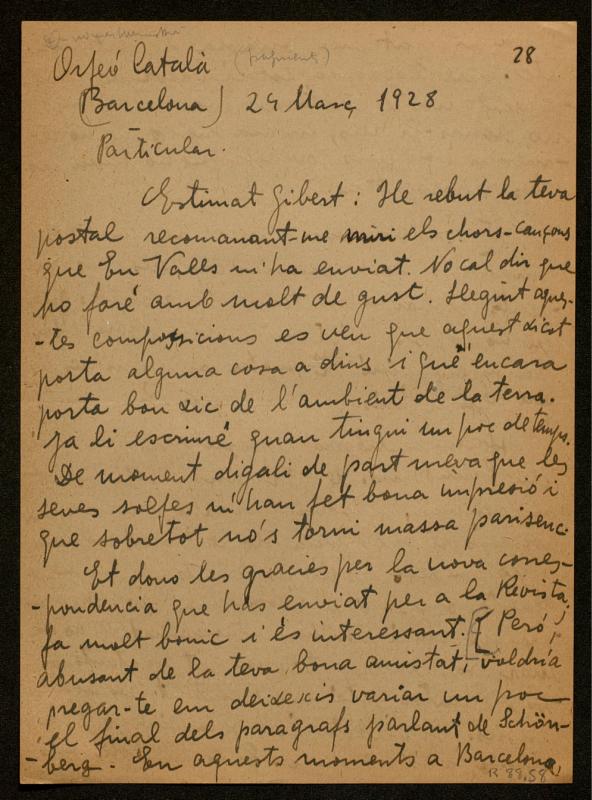 28
Orfeó Català (fragment)
(Barcelona) 24 Març 1928
Particular.
Estimat Gibert: He rebut la teva
postal recomanant-me miri els chors-cançons
que En Valls m'ha enviat. No cal dir que
ho faré amb molt de gust. Llegint aques-
-tes composicions es veu que aquest xicot
porta alguna cosa a dins i que encara
porta bon xic de l'ambient de la terra.
Ja li escriuré quan tingui un poc de temps.
De moment digali de part meva que les
seves solfes m'han fet bona impresió i
que sobretot no's torni massa parisenc.
Et dono les gracies per la nova corres-
-pondencia que has enviat per a la Revista.
fa molt bonic i és interessant. [Peró,
abusant de la teva bona amistat, voldría
pregar-te em deixessis variar un poc
el final dels paragrafs parlant de Schön-
-berg. En aquests moments a Barcelona,
R 88.58